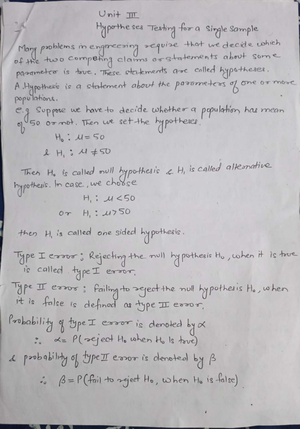 Unit III
Hypotheses Testing for a Single Sample
Many problems in engineering require that we decide which
of the two competing claims or statements about some
parameter is true. These statements are called hypotheses.
A Hypothesis is a statement about the parameters of one or more
populations.
e.g. Suppose we have to decide whether a population has mean
of 50 or not. Then we set the hypotheses,
H₀ : μ = 50
& H₁ : μ ≠ 50
Then H₀ is called null hypothesis & H₁ is called alternative
hypothesis. In case, we choose
H₁ : μ < 50
or H₁ : μ > 50
then H₁ is called one sided hypothesis.
Type I error : Rejecting the null hypothesis H₀, when it is true
is called type I error.
Type II error : failing to reject the null hypothesis H₀, when
it is false is defined as type II error.
Probability of type I error is denoted by α
∴ α = P(reject H₀ when H₀ is true)
& probability of type II error is denoted by β
∴ β = P(fail to reject H₀, when H₀ is false)